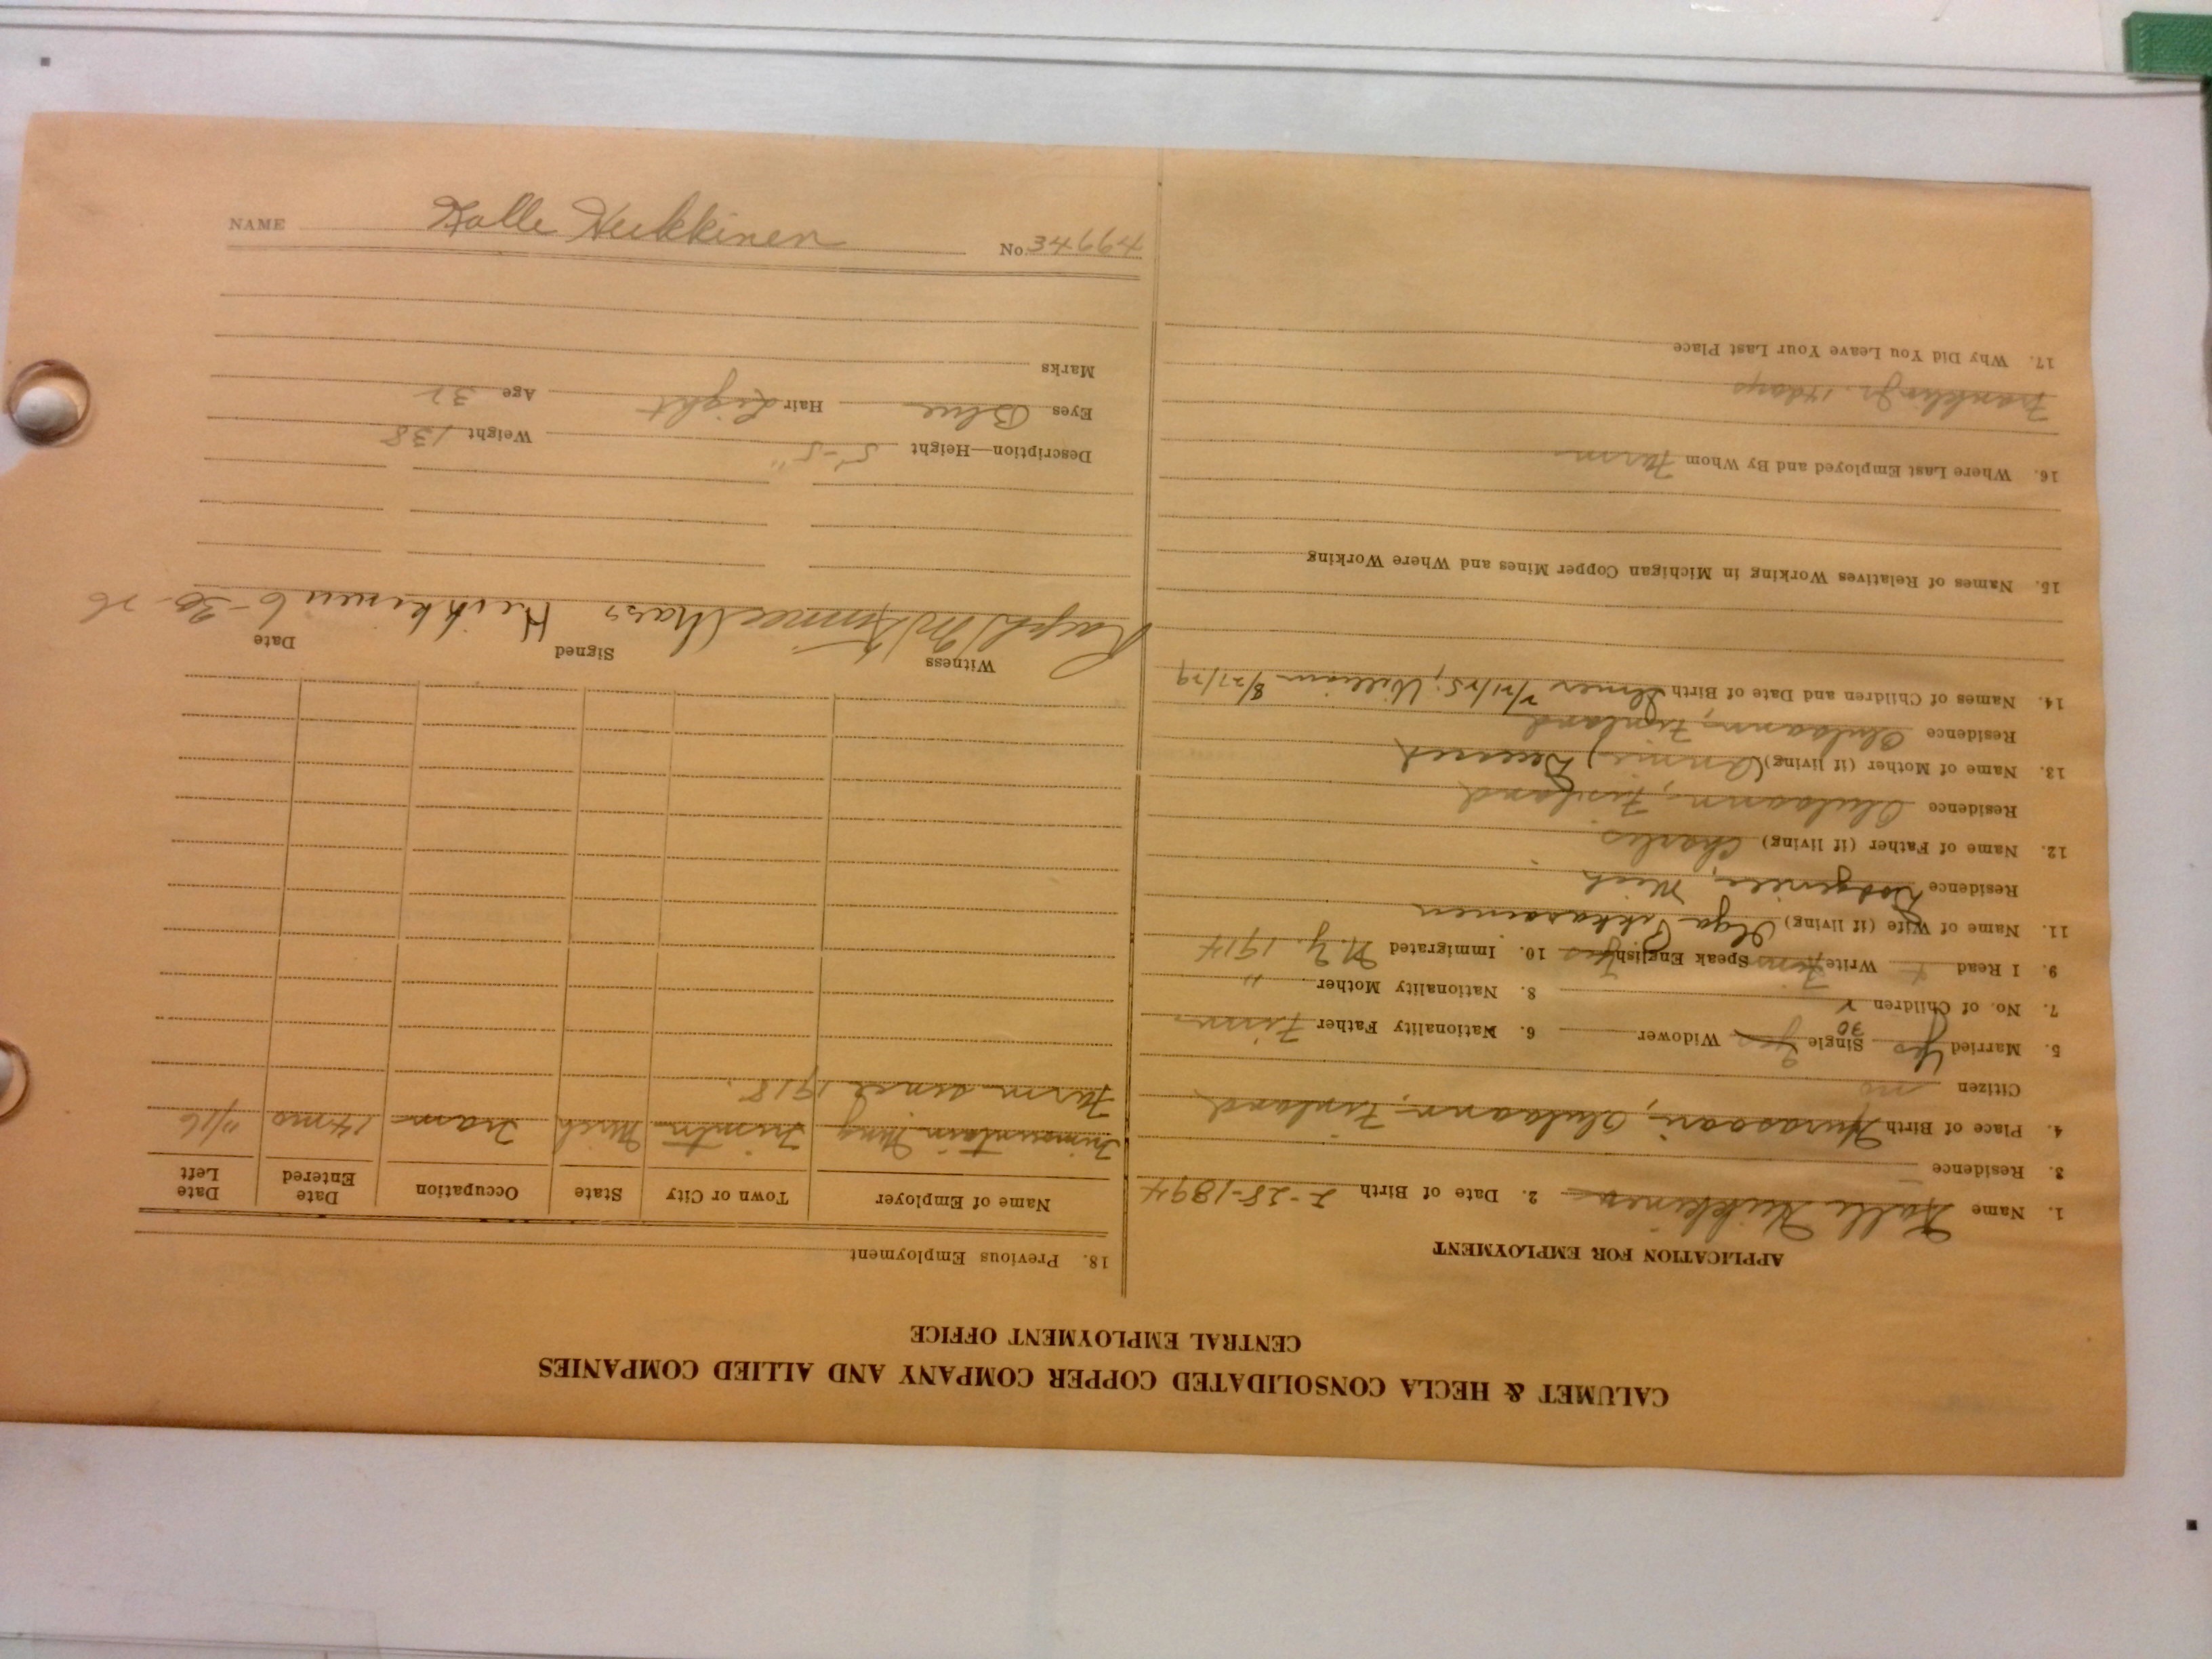 CALUMET & HECLA CONSOLIDATED COPPER COMPANY AND ALLIED COMPANIES
CENTRAL EMPLOYMENT OFFICE
APPLICATION FOR EMPLOYMENT
1. Name Kalle Heikkinen 2. Date of Birth 2-28-1894
3. Residence
4. Place of Birth Finland
Citizen no
5. Married Yes Single Yes Widower 6. Nationality Father Finn
30
7. No. of Children 2 8. Nationality Mother "
9. I Read Write Finn Speak English Yes 10. Immigrated N.Y. 1914
11. Name of Wife (if living) Olga
Residence Mich
12. Name of Father (if living) Charles
Residence Finland
13. Name of Mother (if living) (Annie) Deceased
Residence Finland
14. Names of Children and Date of Birth Elmer 2/21/25; William 8/27/29
15. Names of Relatives Working in Michigan Copper Mines and Where Working
16. Where Last Employed and By Whom Farm
Franklin Jr. 14 days
17. Why Did You Leave Your Last Place
18. Previous Employment
Name of Employer Town or City State Occupation Date Entered Date Left
Trimountain Mng Trimtn Mich Tram 14 mo 11/16
Farm since 1918.
Witness Signed Date
Ralph Chas Heikkinen 6-30-26
Description—Height 5'-5" Weight 138
Eyes Blue Hair Light Age 32
Marks
NAME Kalle Heikkinen No. 34994